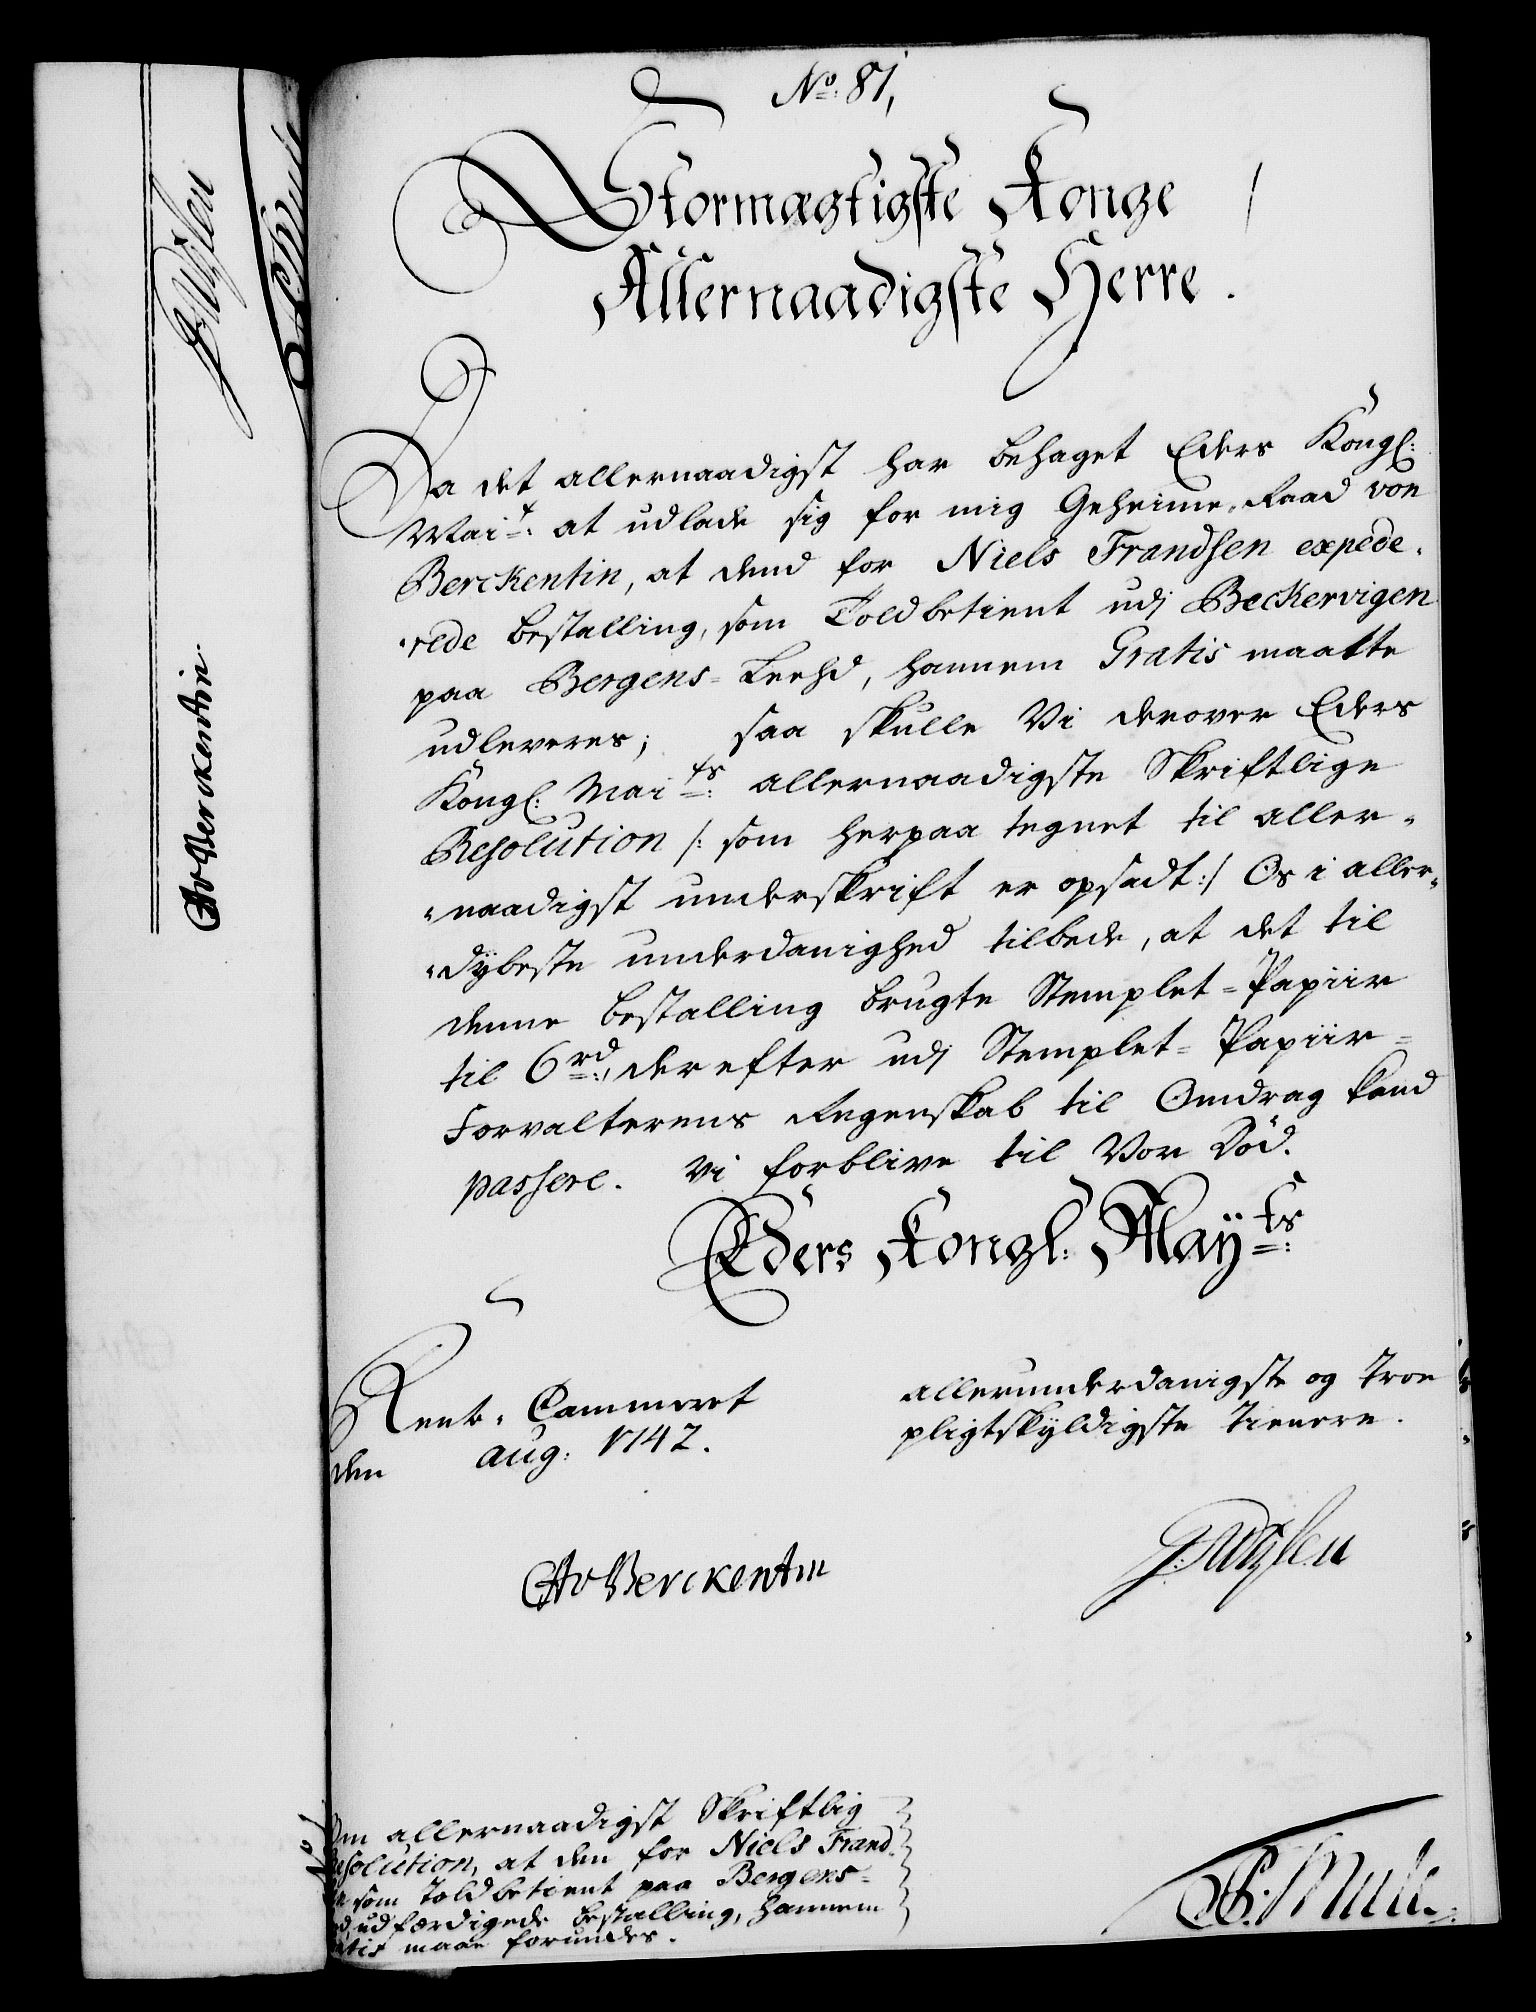 No: 81,
Stormægtigste Konge
Allernaadigste Herre.
Da det allernaadigst har behaget Eders Kongl:
Mait: at udlade sig for mig Geheime-Raad von
Berckentin, at dend for Niels Frandsen expede-
-rede bestalling, som Toldbetient udj Beckervigen
paa Bergens-Leehd, hannem Gratis maatte
udleveres; saa skulle Vi derover Eders
Kongl: Maits: allernaadigste Skriftlige
Resolution /: som herpaa tegnet til aller-
-naadigst underskrift er opsadt :/ Os i aller-
-dÿbeste underdanighed tilbede, at det til
denne bestalling brugte Stemplet-Papiir
til 6 rd:, derefter udj Stemplet-Papiir-
Forvalterens Regenskab til Omdrag kand
passere. Vi forblive til Vor Död.
Eders Kongl: Maÿts:
Rente-Cammeret
den aug: 1742.
allerunderdanigste og Troe
pligtskÿldigste Tienere.
CAvBerckentin
Om allernaadigst Skriftlig
esolution, at den for Niels Frand-
som Toldbetient paa Bergens-
udfærdigede bestalling, hannem
atis maae forundes.
CAvBerckentin.